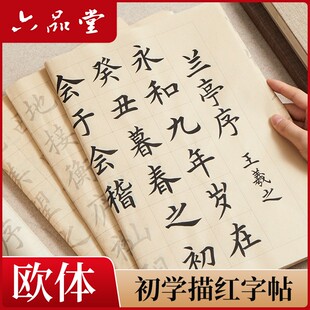 六品堂
兰亭序
王羲之
永和九年岁在
癸丑暮春之初
会于会稽
地接衡
欧体
初学描红字帖